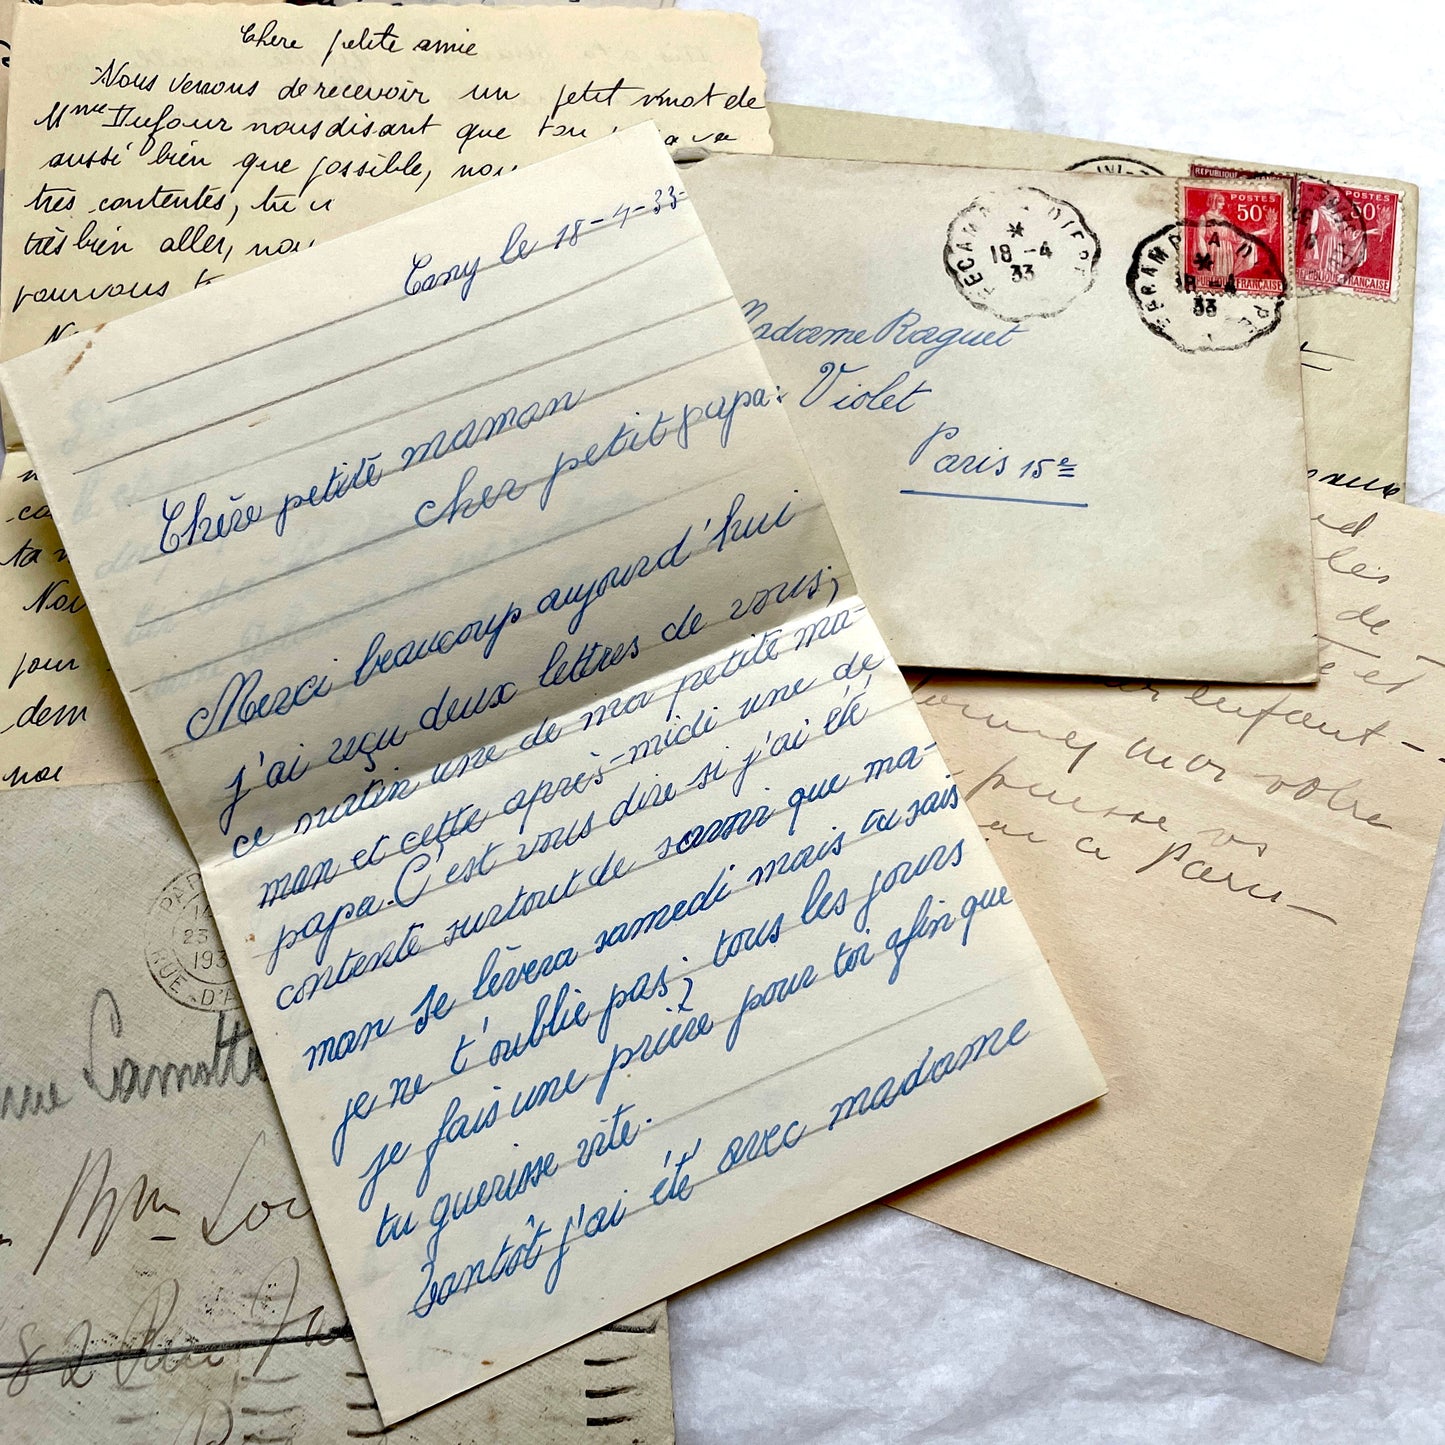 Chère petite amie
Nous venons de recevoir un petit mot de
Mme Dufour nous disant que ton va
aussi bien que possible, nou
très contentes, tu
très bien aller, nou
pouvons
Cany le 18-4-33-
Chère petite maman
cher petit papa
Merci beaucoup aujourd'hui
j'ai reçu deux lettres de vous;
ce matin une de ma petite ma-
man et cette après-midi une de
papa. C'est vous dire si j'ai été
contente surtout de savoir que ma-
man se lèvera samedi mais tu sais
je ne t'oublie pas; tous les jours
je fais une prière pour toi afin que
tu guerisse vite.
Tantôt j'ai été avec madame
18-4
33
18-4
33
RÉPUBLIQUE
POSTES
50c
RÉPUBLIQUE FRANÇAISE
POSTES
50c
RÉPUBLIQUE FRANÇAISE
Madame Raguet
Violet
Paris 15e
les
de
et
enfant-
votre
vs
a Paris-
ta
Nou
pour
dem
noi
PAR
23
193
RUE D'A
Mme Lou
82 Rue